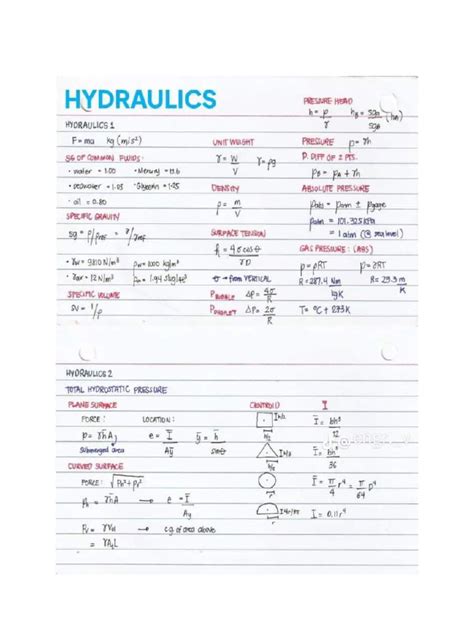 HYDRAULICS
HYDRAULICS 1
F = ma kg (m/s²)
SG OF COMMON FLUIDS:
• water = 1.00 • Mercury = 13.6
• seawater = 1.03 • Glycerin = 1.25
• oil = 0.80
SPECIFIC GRAVITY
sg = ρ/ρref = γ/γref
• γw = 9810 N/m³ • ρw = 1000 kg/m³
• γair = 12 N/m³ • ρw = 1.94 slug/ft³
SPECIFIC VOLUME
SV = 1/ρ
UNIT WEIGHT
γ = W/V γ = ρg
DENSITY
ρ = m/V
SURFACE TENSION
h = 4σcosθ/γD
θ → from VERTICAL
P BUBBLE ΔP = 4σ/R
P DROPLET ΔP = 2σ/R
PRESSURE HEAD
h = P/γ
PRESSURE P = γh
P. DIFF OF 2 PTS.
PB = PA + γh
ABSOLUTE PRESSURE
Pabs = Patm ± Pgage
Patm = 101.325 kPa
= 1 atm (@ sea level)
GAS PRESSURE: (ABS)
P = ρRT P = γRT
R = 287.4 Nm/kgK R = 29.3 m/K
T = °C + 273K
HYDRAULICS 2
TOTAL HYDROSTATIC PRESSURE
PLANE SURFACE
FORCE: LOCATION:
P = γh̄A e = Ī/Aȳ ȳ = h̄/sinθ
Submerged area
CURVED SURFACE
FORCE: √Ph² + Pv²
Ph = γh̄A → e = Ī/Aȳ
Pv = γVol → c.g. of area above
CENTROID I
h/2 Ī = bh³/12
h/3 Ī = bh³/36
Ī = π/4 r⁴ = π/64 D⁴
4r/3π Ī = 0.11r⁴